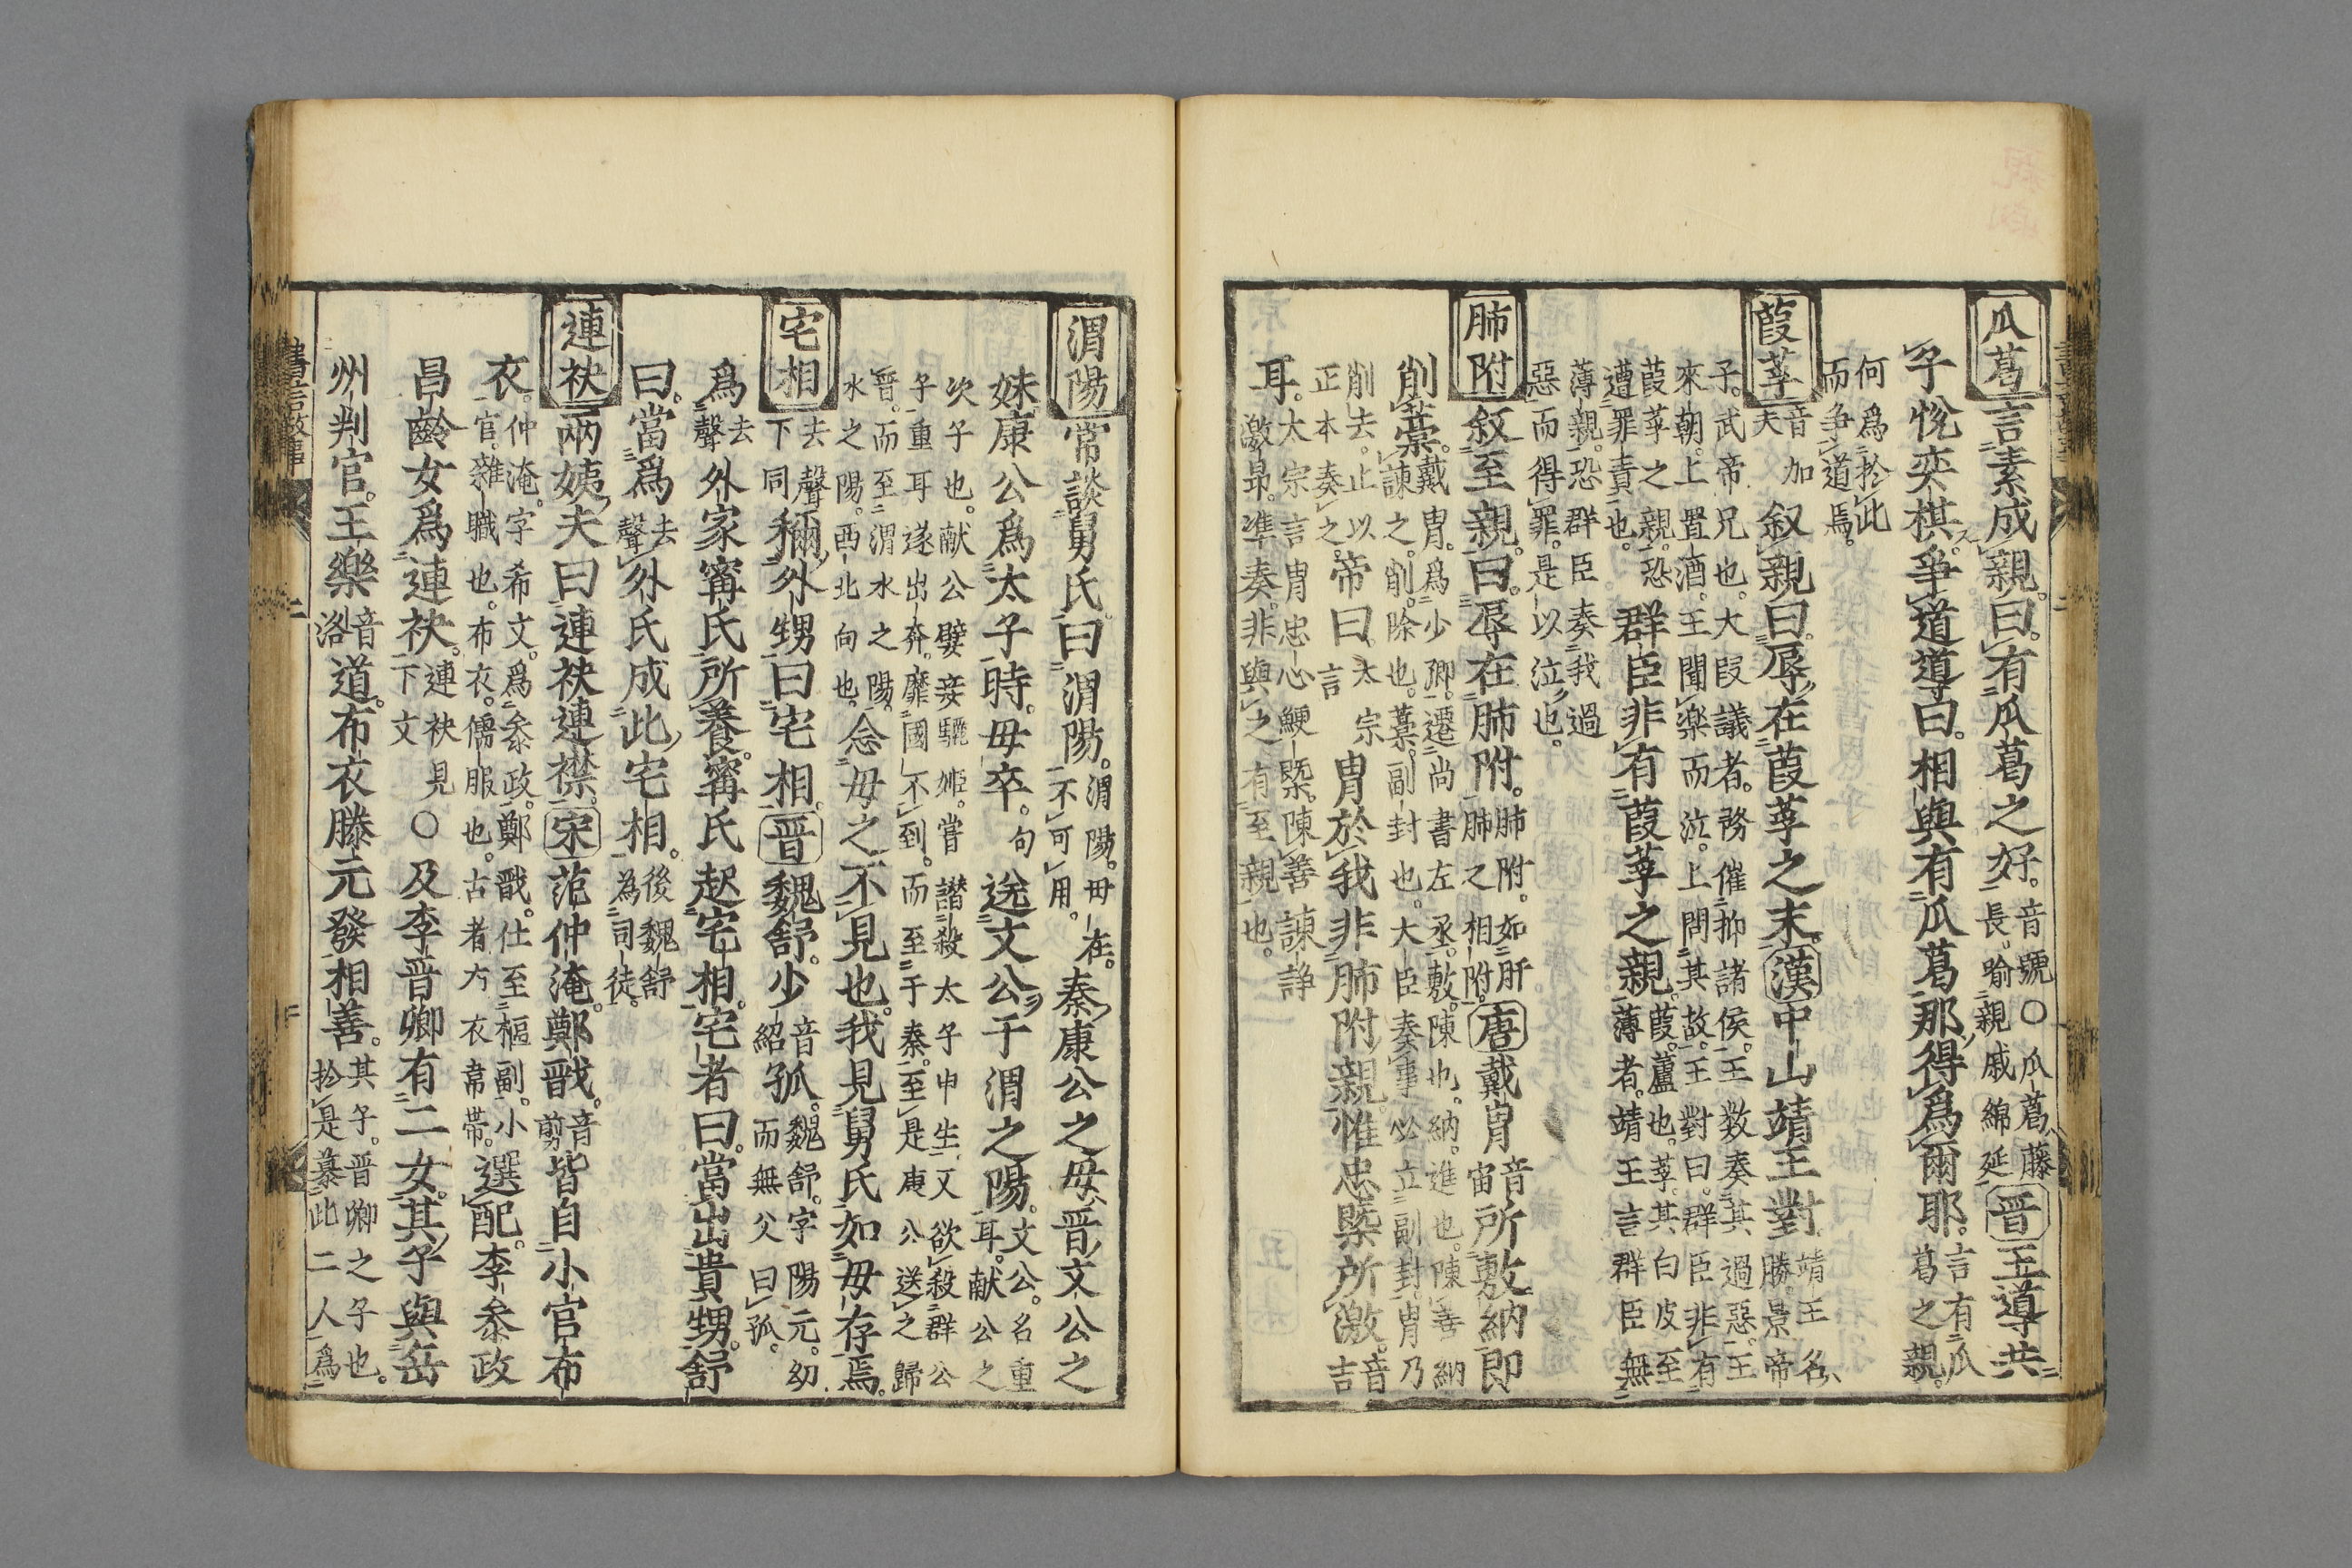 瓜葛 言素成親。曰。有瓜葛之好。音號○瓜葛、藤長。喻親戚綿延 晋 王導共
子悅奕棋。爭道導曰。相與有瓜葛那得爲爾耶。言有瓜葛之親。
何爲於此而争道焉。
葭莩 音加夫 叙親曰。辱在葭莩之末。漢 中山靖王對 靖王名勝。景帝
子。武帝兄也。大叚議者。務催抑諸侯。王数奏其過惡。王來朝。上置酒。王聞樂而泣。上問其故。王對曰。群臣非有
葭莩之親。恐遭罪責也。群臣非有葭莩之親。葭。蘆也。莩。其白皮至薄者。靖王言群臣無
薄親。恐群臣奏我過惡而得罪。是以泣也。
肺附 叙至親。曰。辱在肺附。肺附。如肝肺之相附。唐 戴胄 音宙 所敷納即
削藁。戴胄。爲少卿。遷尚書左丞。敷。陳也。納。進也。陳善納諫之。削。除也。藁。副封也。大臣奏事必立副封。胄乃
削去。止以正本奏之。帝曰。太宗言 胄於我非肺附親。惟忠槩所激。音吉
耳。太宗言胄忠心鯁槩。陳善諌諍激昻。凖奏。非與之有至親也。
渭陽 常談舅氏。曰渭陽。渭陽。毋在。不可用。秦康公之毋、晋文公之
妹。康公爲太子時。毋卒。句 送文公于渭之陽。文公。名重耳。献公之
次子也。献公嬖妾驪姬。嘗譖殺太子申生、又欲殺群公子重耳遂出奔。靡國不到。而至于秦。至是庚公送之歸
晋。而至渭水之陽。水之陽。西北向也。念毋之不見也。我見舅氏如毋存焉。
宅相 去聲下同 稱外甥曰宅相。晋 魏舒。少 音紹 孤。魏舒。字陽元。幼而無父曰孤。
爲 去聲 外家寗氏所養。寗氏起宅相。宅者曰。當出貴甥。舒
曰。當爲 去聲 外氏成此宅相。後魏舒為司徒。
連袂 兩姨夫曰連袂連襟。宋 范仲淹。鄭戩。音剪 皆自小官布
衣。仲淹。字希文。爲叅政。鄭戩。仕至樞副。小官。雜職也。布衣。儒服也。古者方衣韋帶。選配。李叅政
昌齡女爲連袂。連袂見下文 ○及李晋卿有二女。其子與岳
州判官。王樂 音洛 道。布衣滕元發相善。其子。晋卿之子也。於是慕此二人爲